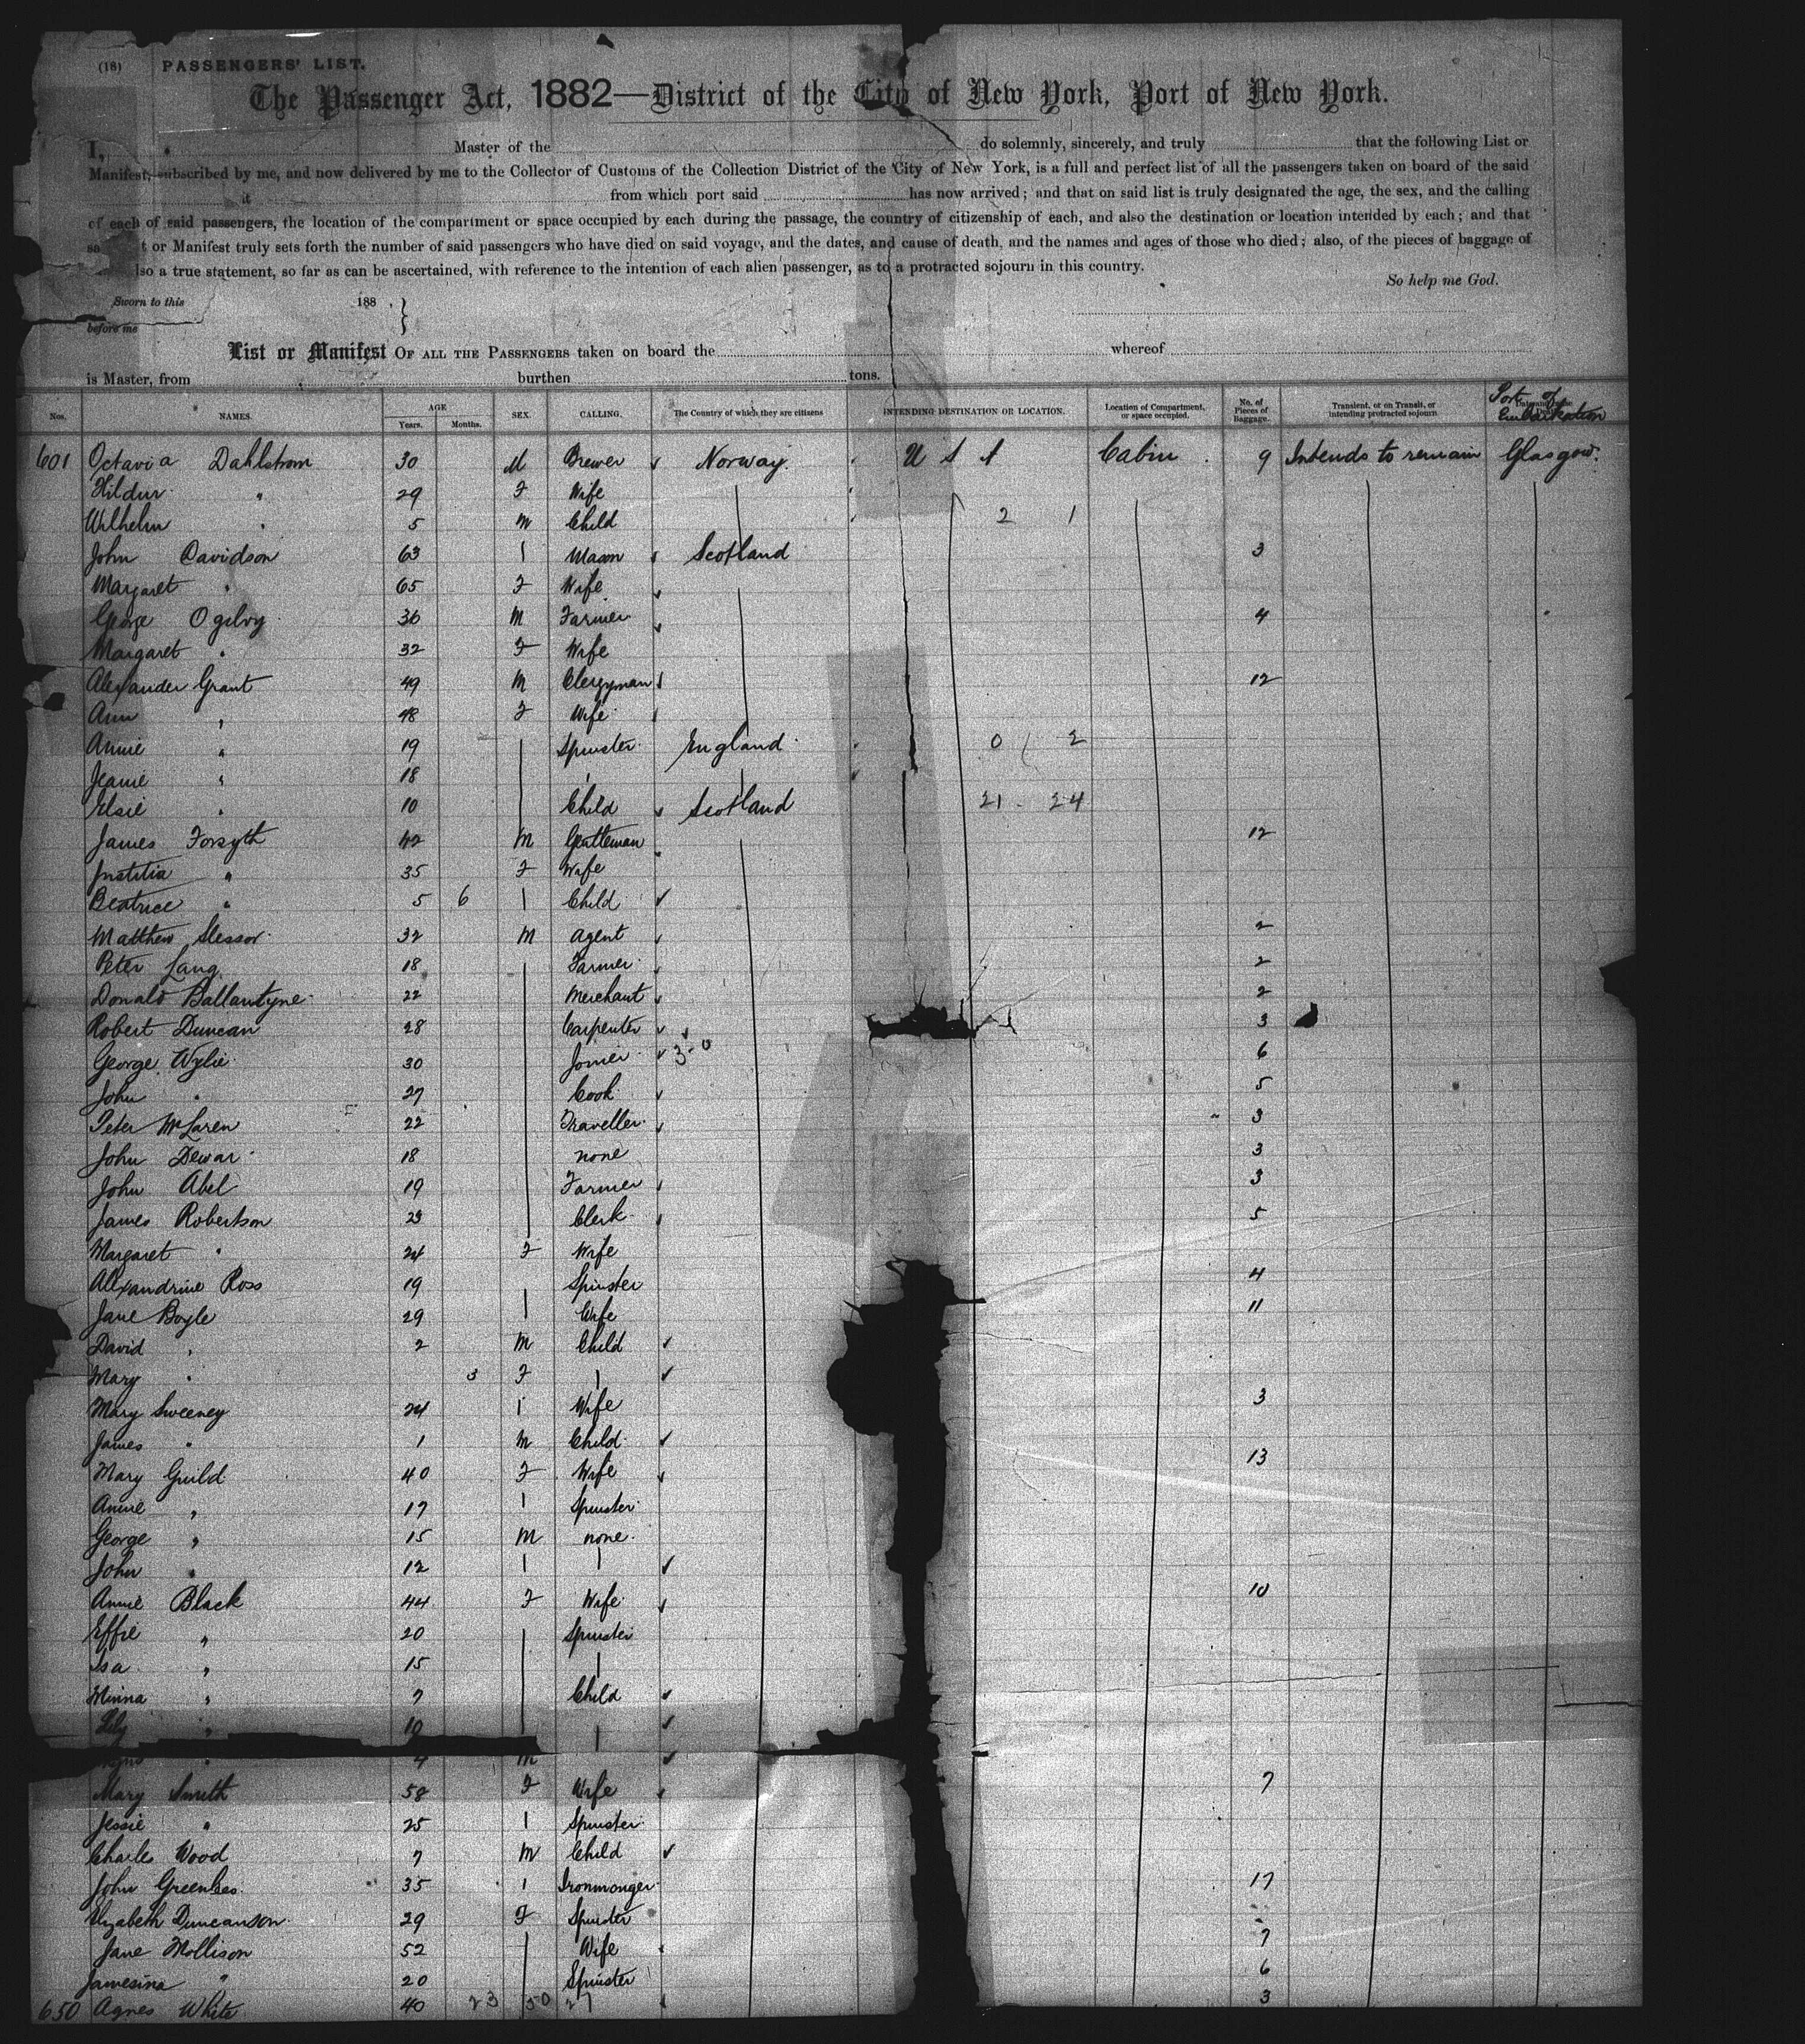 (18) PASSENGERS' LIST.
The Passenger Act, 1882—District of the City of New York, Port of New York.
I, Master of the do solemnly, sincerely, and truly that the following List or
Manifest, subscribed by me, and now delivered by me to the Collector of Customs of the Collection District of the City of New York, is a full and perfect list of all the passengers taken on board of the said
from which port said has now arrived; and that on said list is truly designated the age, the sex, and the calling
of each of said passengers, the location of the compartment or space occupied by each during the passage, the country of citizenship of each, and also the destination or location intended by each; and that
or Manifest truly sets forth the number of said passengers who have died on said voyage, and the dates, and cause of death, and the names and ages of those who died; also, of the pieces of baggage of
also a true statement, so far as can be ascertained, with reference to the intention of each alien passenger, as to a protracted sojourn in this country.
So help me God.
Sworn to this 188 . }
before me
List or Manifest OF ALL THE PASSENGERS taken on board the whereof
is Master, from burthen tons.
Nos. NAMES. AGE Years. Months. SEX. CALLING. The Country of which they are citizens INTENDING DESTINATION OR LOCATION. Location of Compartment, or space occupied. No. of Pieces of Baggage. Transient, or on Transit, or intending protracted sojourn Port of Embarkation
601 Octavia Dahlstrom 30 M Brewer Norway. U S A Cabin 9 Intends to remain Glasgow.
Hildur " 29 F Wife
Wilhelm " 5 M Child 2 1
John Davidson 63 | Mason Scotland 3
Margaret " 65 F Wife
George Ogilvy 36 M Farmer 4
Margaret " 32 F Wife
Alexander Grant 49 M Clergyman 12
Ann " 48 F Wife
Annie " 19 Spinster England 0 2
Jeanie " 18
Elsie " 10 Child Scotland 21 - 24
James Forsyth 42 M Gentleman 12
Justitia " 35 F Wife
Beatrice " 5 6 | Child
Matthew Slessor 32 M Agent 2
Peter Lang 18 Farmer 2
Donald Ballantyne 22 Merchant 2
Robert Duncan 28 Carpenter 3
George Wylie 30 Joiner 6
John " 27 Cook 5
Peter McLaren 22 Traveller 3
John Dewar 18 none 3
John Abel 19 Farmer 3
James Robertson 23 Clerk 5
Margaret " 24 F Wife
Alexandrine Ross 19 Spinster 4
Jane Boyle 29 | Wife 11
David " 2 M Child
Mary " 3 F |
Mary Sweeney 24 | Wife 3
James " 1 M Child
Mary Guild 40 F Wife 13
Annie " 17 | Spinster
George " 15 M none
John " 12 | |
Annie Black 44 F Wife 10
Effie " 20 Spinster
Isa " 15 |
Minna " 7 Child
Lily " 10 |
" 4 M
Mary Smith 58 F Wife 7
Jessie " 25 | Spinster
Charles Wood 7 M Child
John Greenlees 35 | Ironmonger 17
Elizabeth Duncanson 29 F Spinster
Jane Mollison 52 Wife 7
Jamesina " 20 Spinster 6
650 Agnes White 40 23 50 27 3